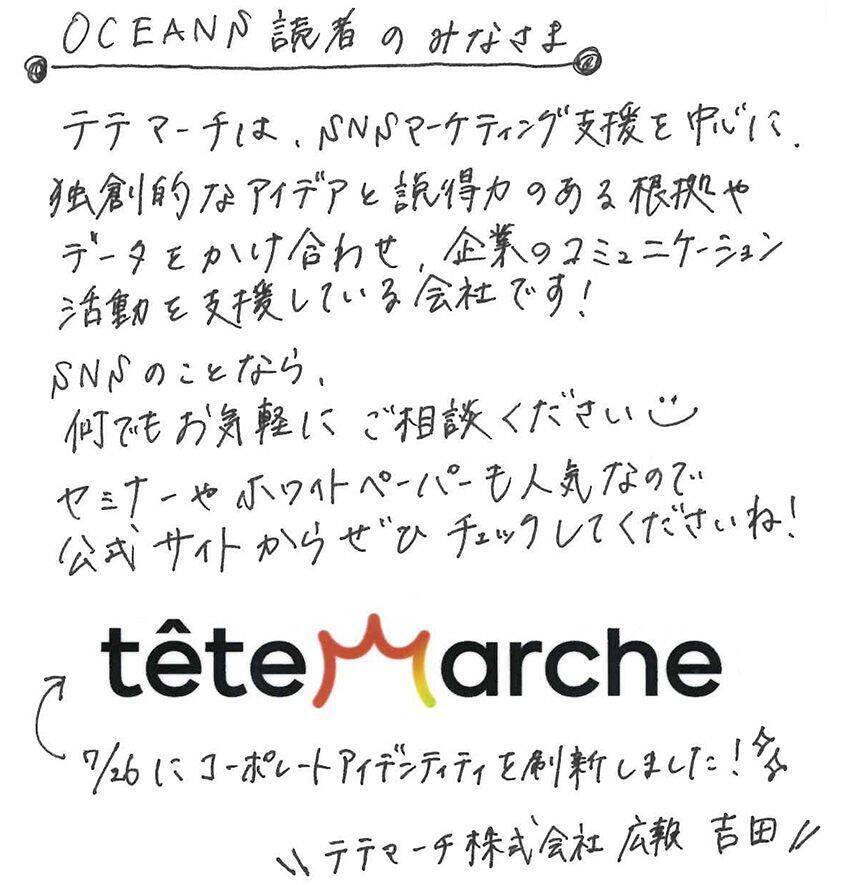 OCEANS 読者のみなさま
テテマーチは、SNSマーケティング支援を中心に、
独創的なアイデアと説得力のある根拠や
データをかけ合わせ、企業のコミュニケーション
活動を支援している会社です!
SNSのことなら、
何でもお気軽にご相談ください
セミナーやホワイトペーパーも人気なので
公式サイトからぜひチェックしてくださいね!
têteMarche
7/26にコーポレートアイデンティティを刷新しました!
\\ テテマーチ株式会社 広報 吉田 //